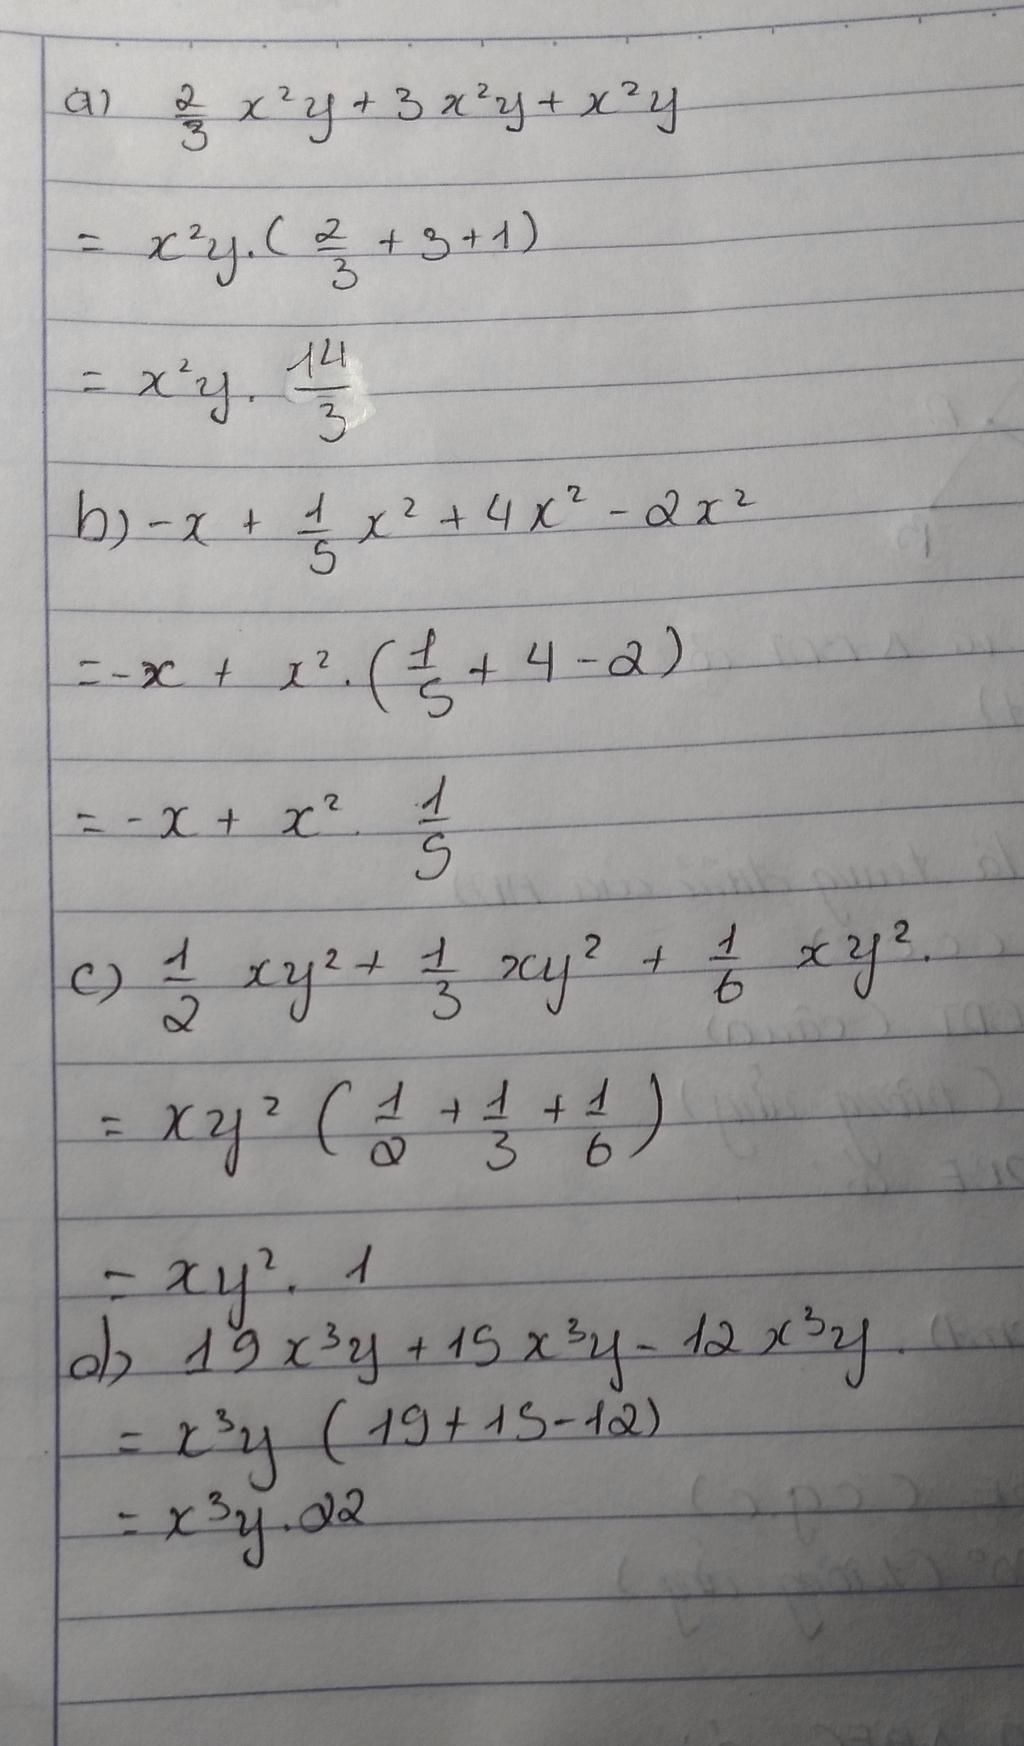 a) 2/3 x²y + 3x²y + x²y
= x²y.(2/3 + 3 + 1)
= x²y. 14/3
b) -x + 1/5 x² + 4x² - 2x²
= -x + x².(1/5 + 4 - 2)
= -x + x². 1/5
c) 1/2 xy² + 1/3 xy² + 1/6 xy².
= xy² (1/2 + 1/3 + 1/6)
= xy². 1
d) 19x³y + 15x³y - 12x³y.
= x³y (19 + 15 - 12)
= x³y. 22